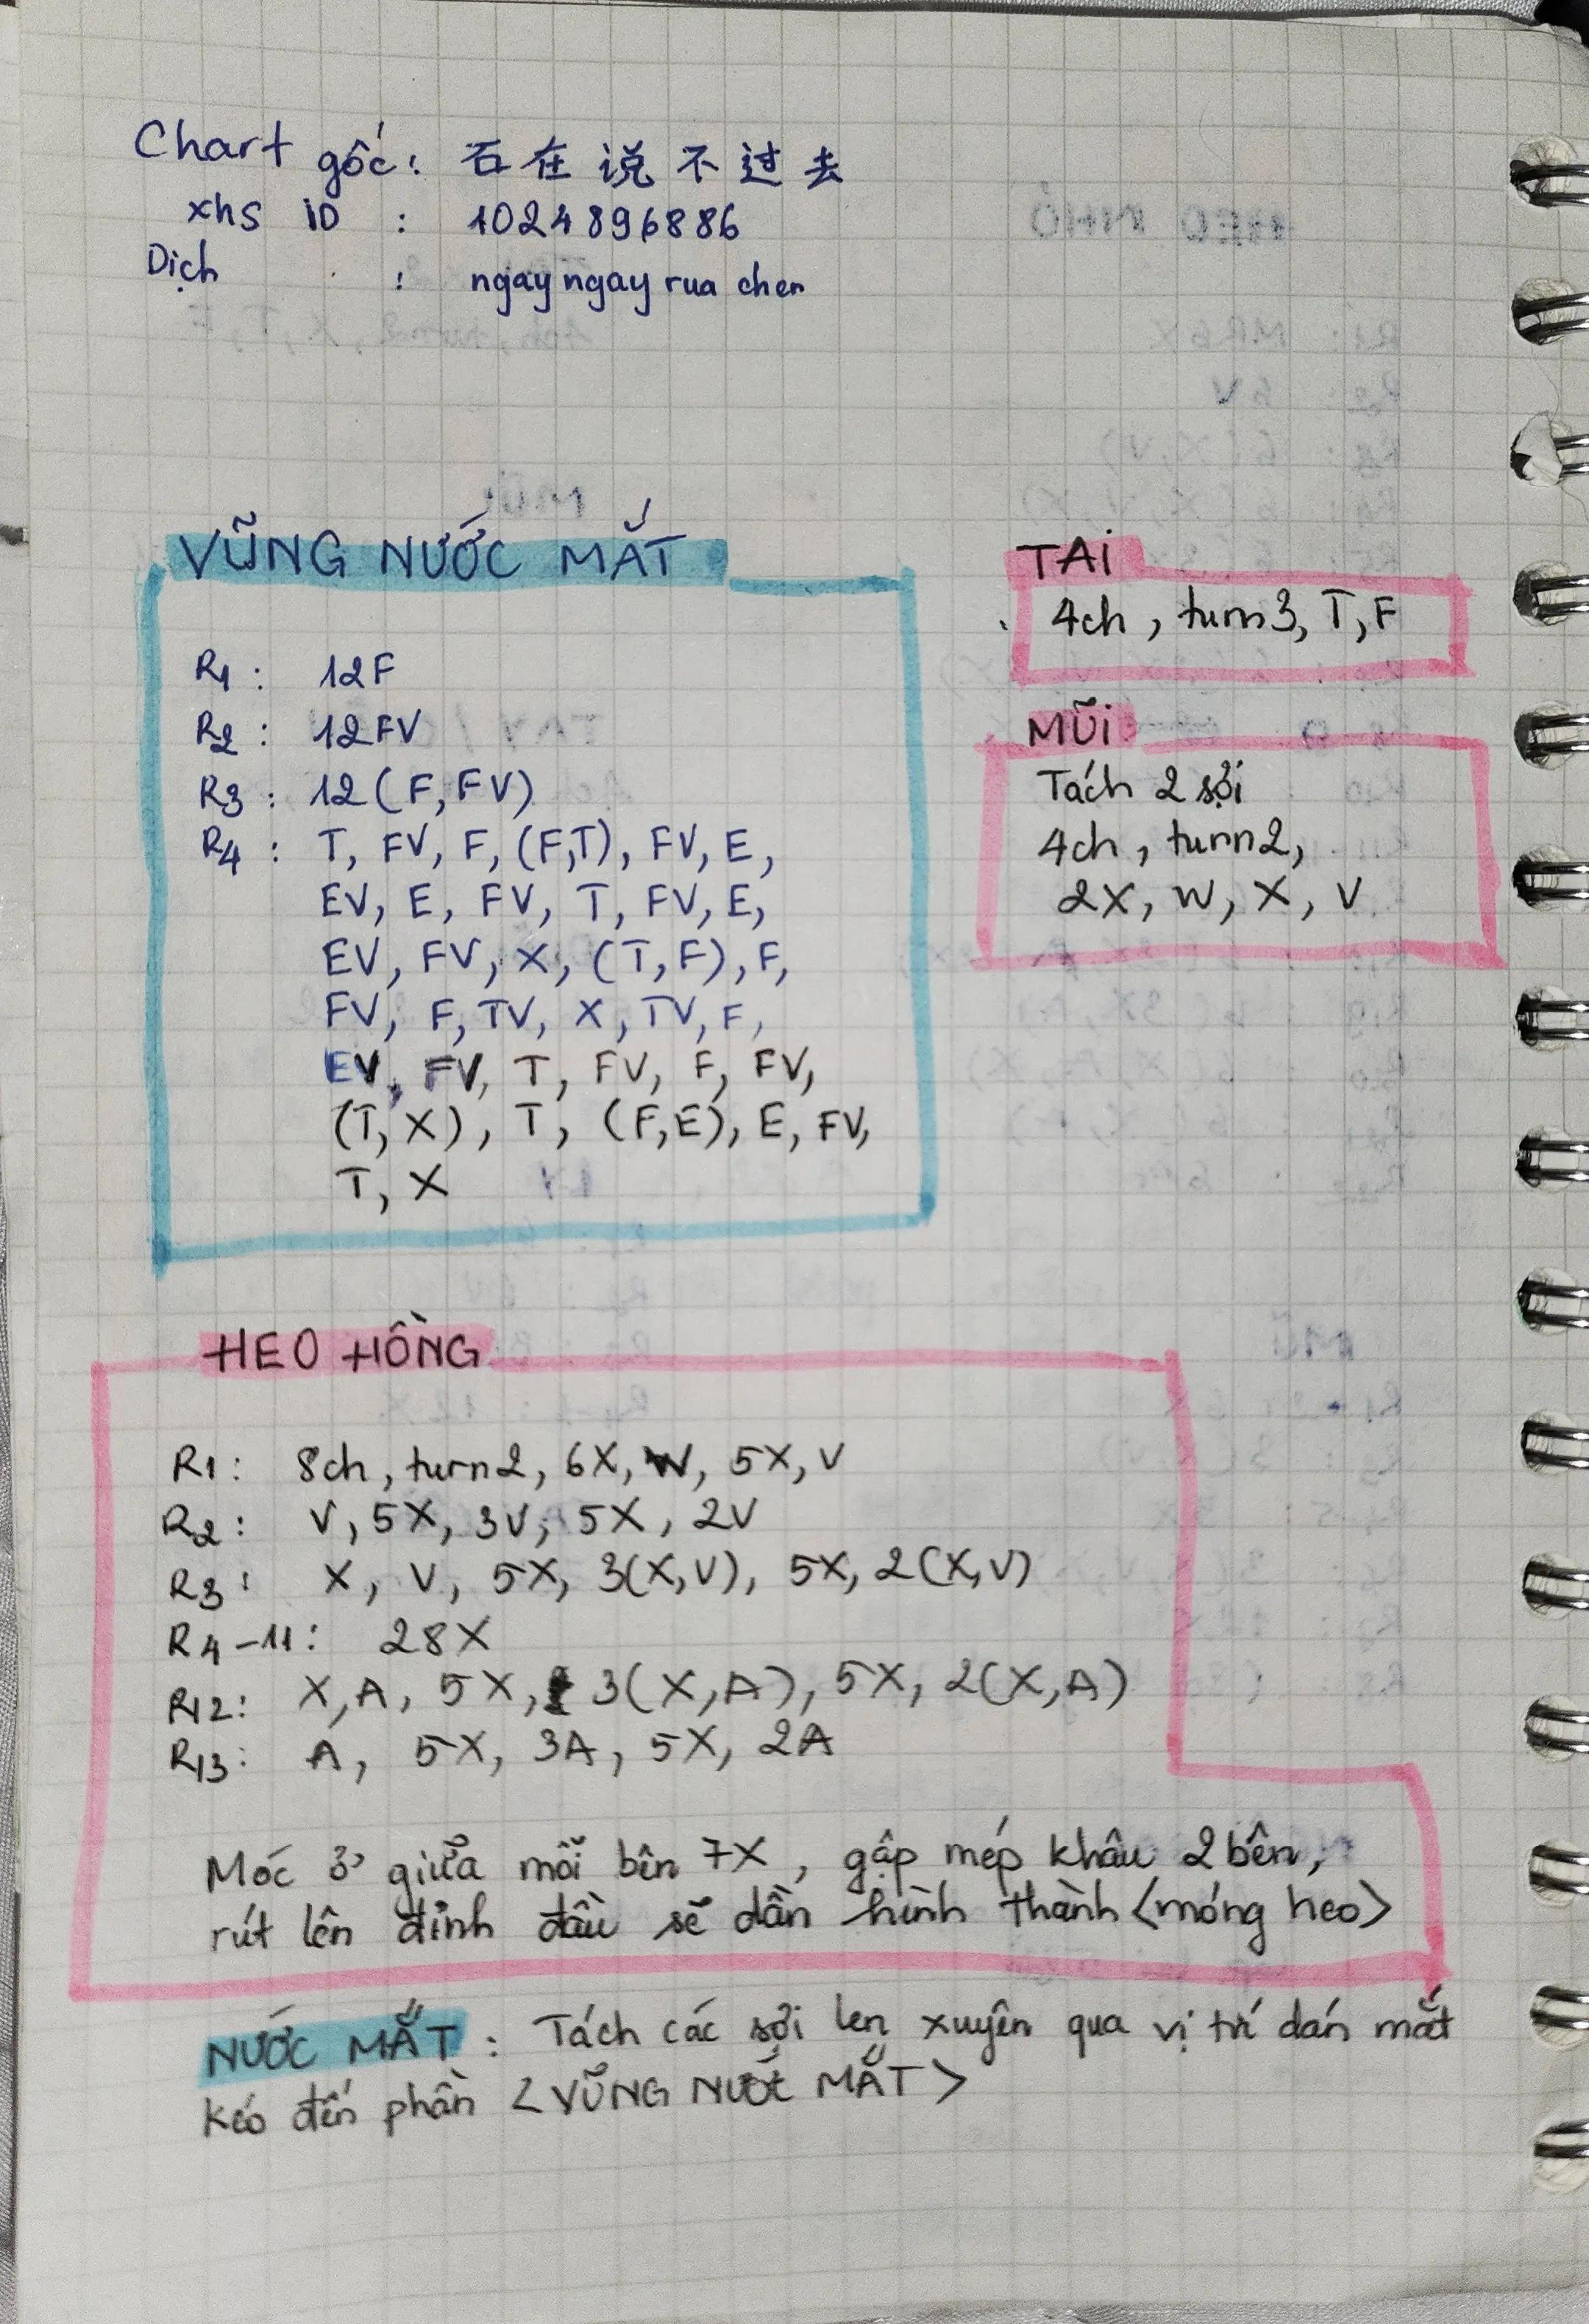 Chart gốc: 石在说不过去
xhs iD : 1024896886
Dịch : ngay ngay rua chen
VŨNG NƯỚC MẮT
R1: 12F
R2: 12FV
R3: 12(F, FV)
R4: T, FV, F, (F,T), FV, E,
EV, E, FV, T, FV, E,
EV, FV, X, (T, F), F,
FV, F, TV, X, TV, F,
EV, FV, T, FV, F, FV,
(T, X), T, (F,E), E, FV,
T, X
TAi
4ch, turn3, T, F
MŨi
Tách 2 sợi
4ch, turn2,
2X, W, X, V
HEO HỒNG
R1: 8ch, turn2, 6X, W, 5X, V
R2: V, 5X, 3V, 5X, 2V
R3: X, V, 5X, 3(X,V), 5X, 2(X,V)
R4-11: 28X
R12: X, A, 5X, 3(X,A), 5X, 2(X,A)
R13: A, 5X, 3A, 5X, 2A
Móc ở giữa mỗi bên 7X, gập mép khâu 2 bên,
rút lên đỉnh đầu sẽ dần hình thành <móng heo>
NƯỚC MẮT: Tách các sợi len xuyên qua vị trí dán mắt
kéo đến phần <VŨNG NƯỚC MẮT>